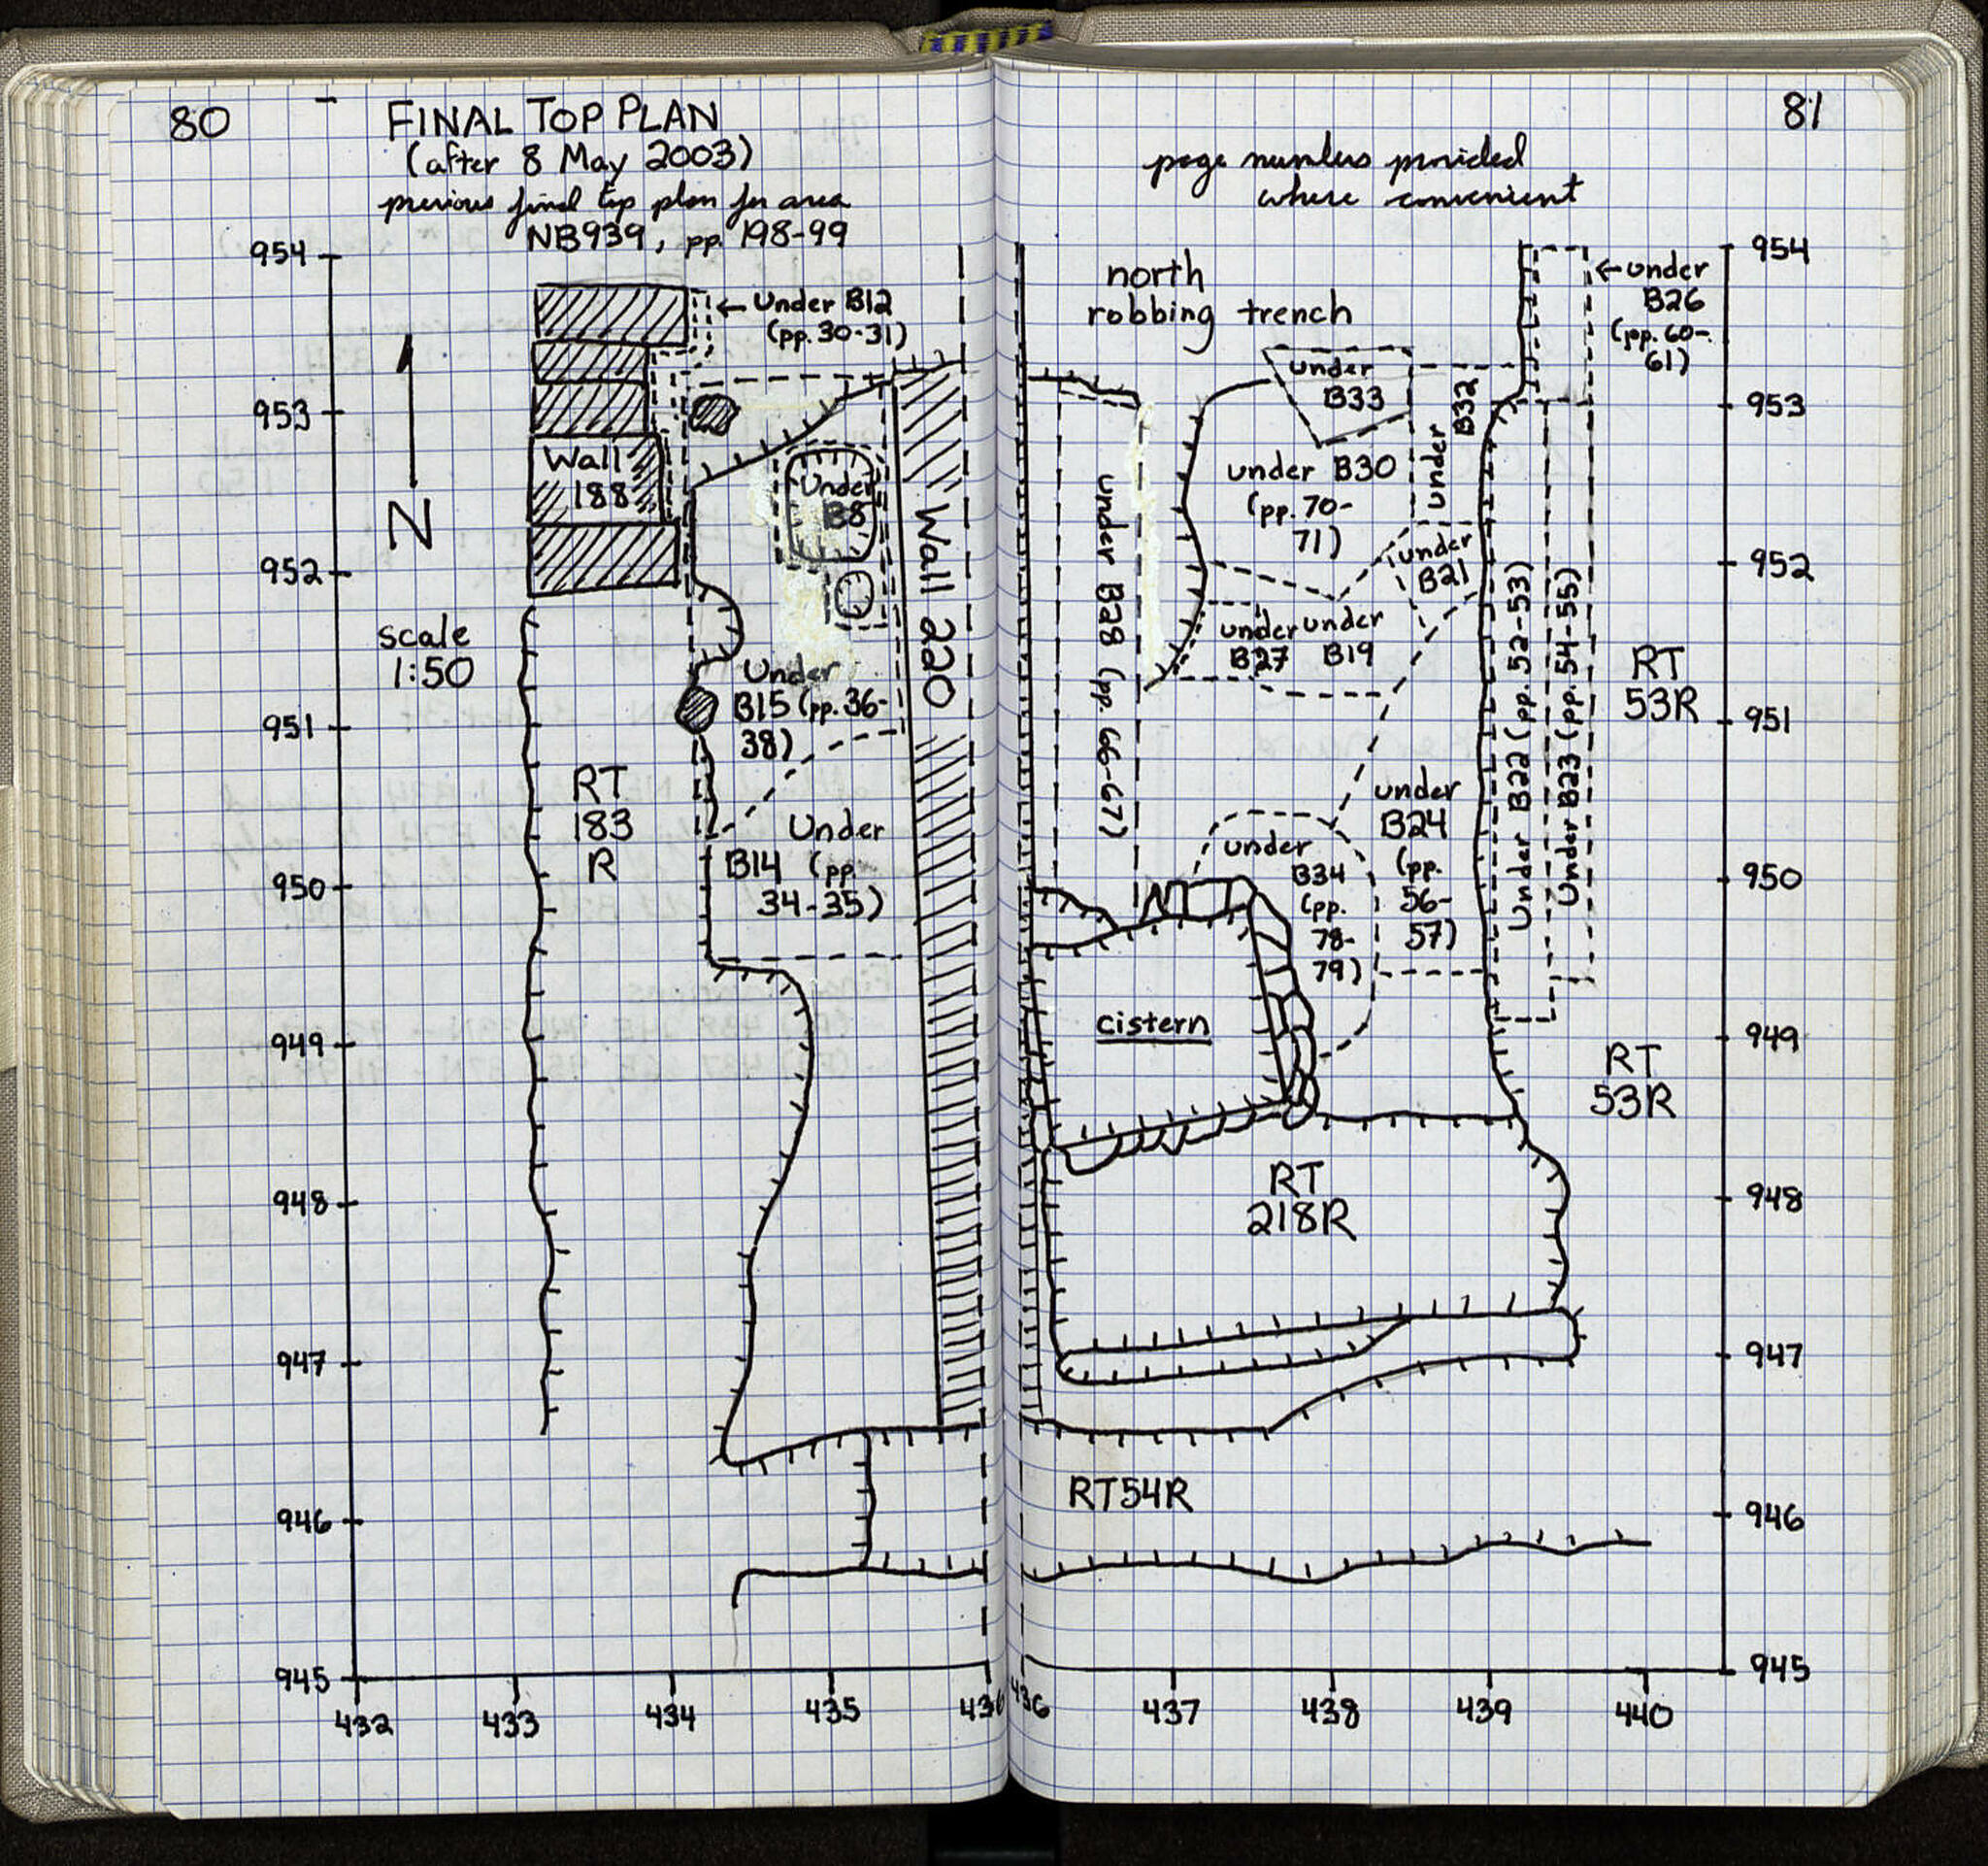 80
FINAL TOP PLAN
(after 8 May 2003)
previous final top plan for area
NB939, pp. 198-99
954
953
952
951
950
949
948
947
946
945
432
433
434
435
436
N
scale
1:50
← Under B12
(pp. 30-31)
Wall
188
Under
B8
Wall 220
Under
B15 (pp. 36-
38)
RT
183
R
Under
B14 (pp.
34-35)
81
page numbers provided
where convenient
north
robbing trench
← under
B26
(pp. 60-
61)
under
B33
under B32
under B30
(pp. 70-
71)
under
B21
under B28 (pp. 66-67)
under
B27
under
B19
Under B22 (pp. 52-53)
Under B23 (pp. 54-55)
RT
53R
under
B24
(pp.
56-
57)
under
B34
(pp.
78-
79)
cistern
RT
53R
RT
218R
RT54R
954
953
952
951
950
949
948
947
946
945
436
437
438
439
440